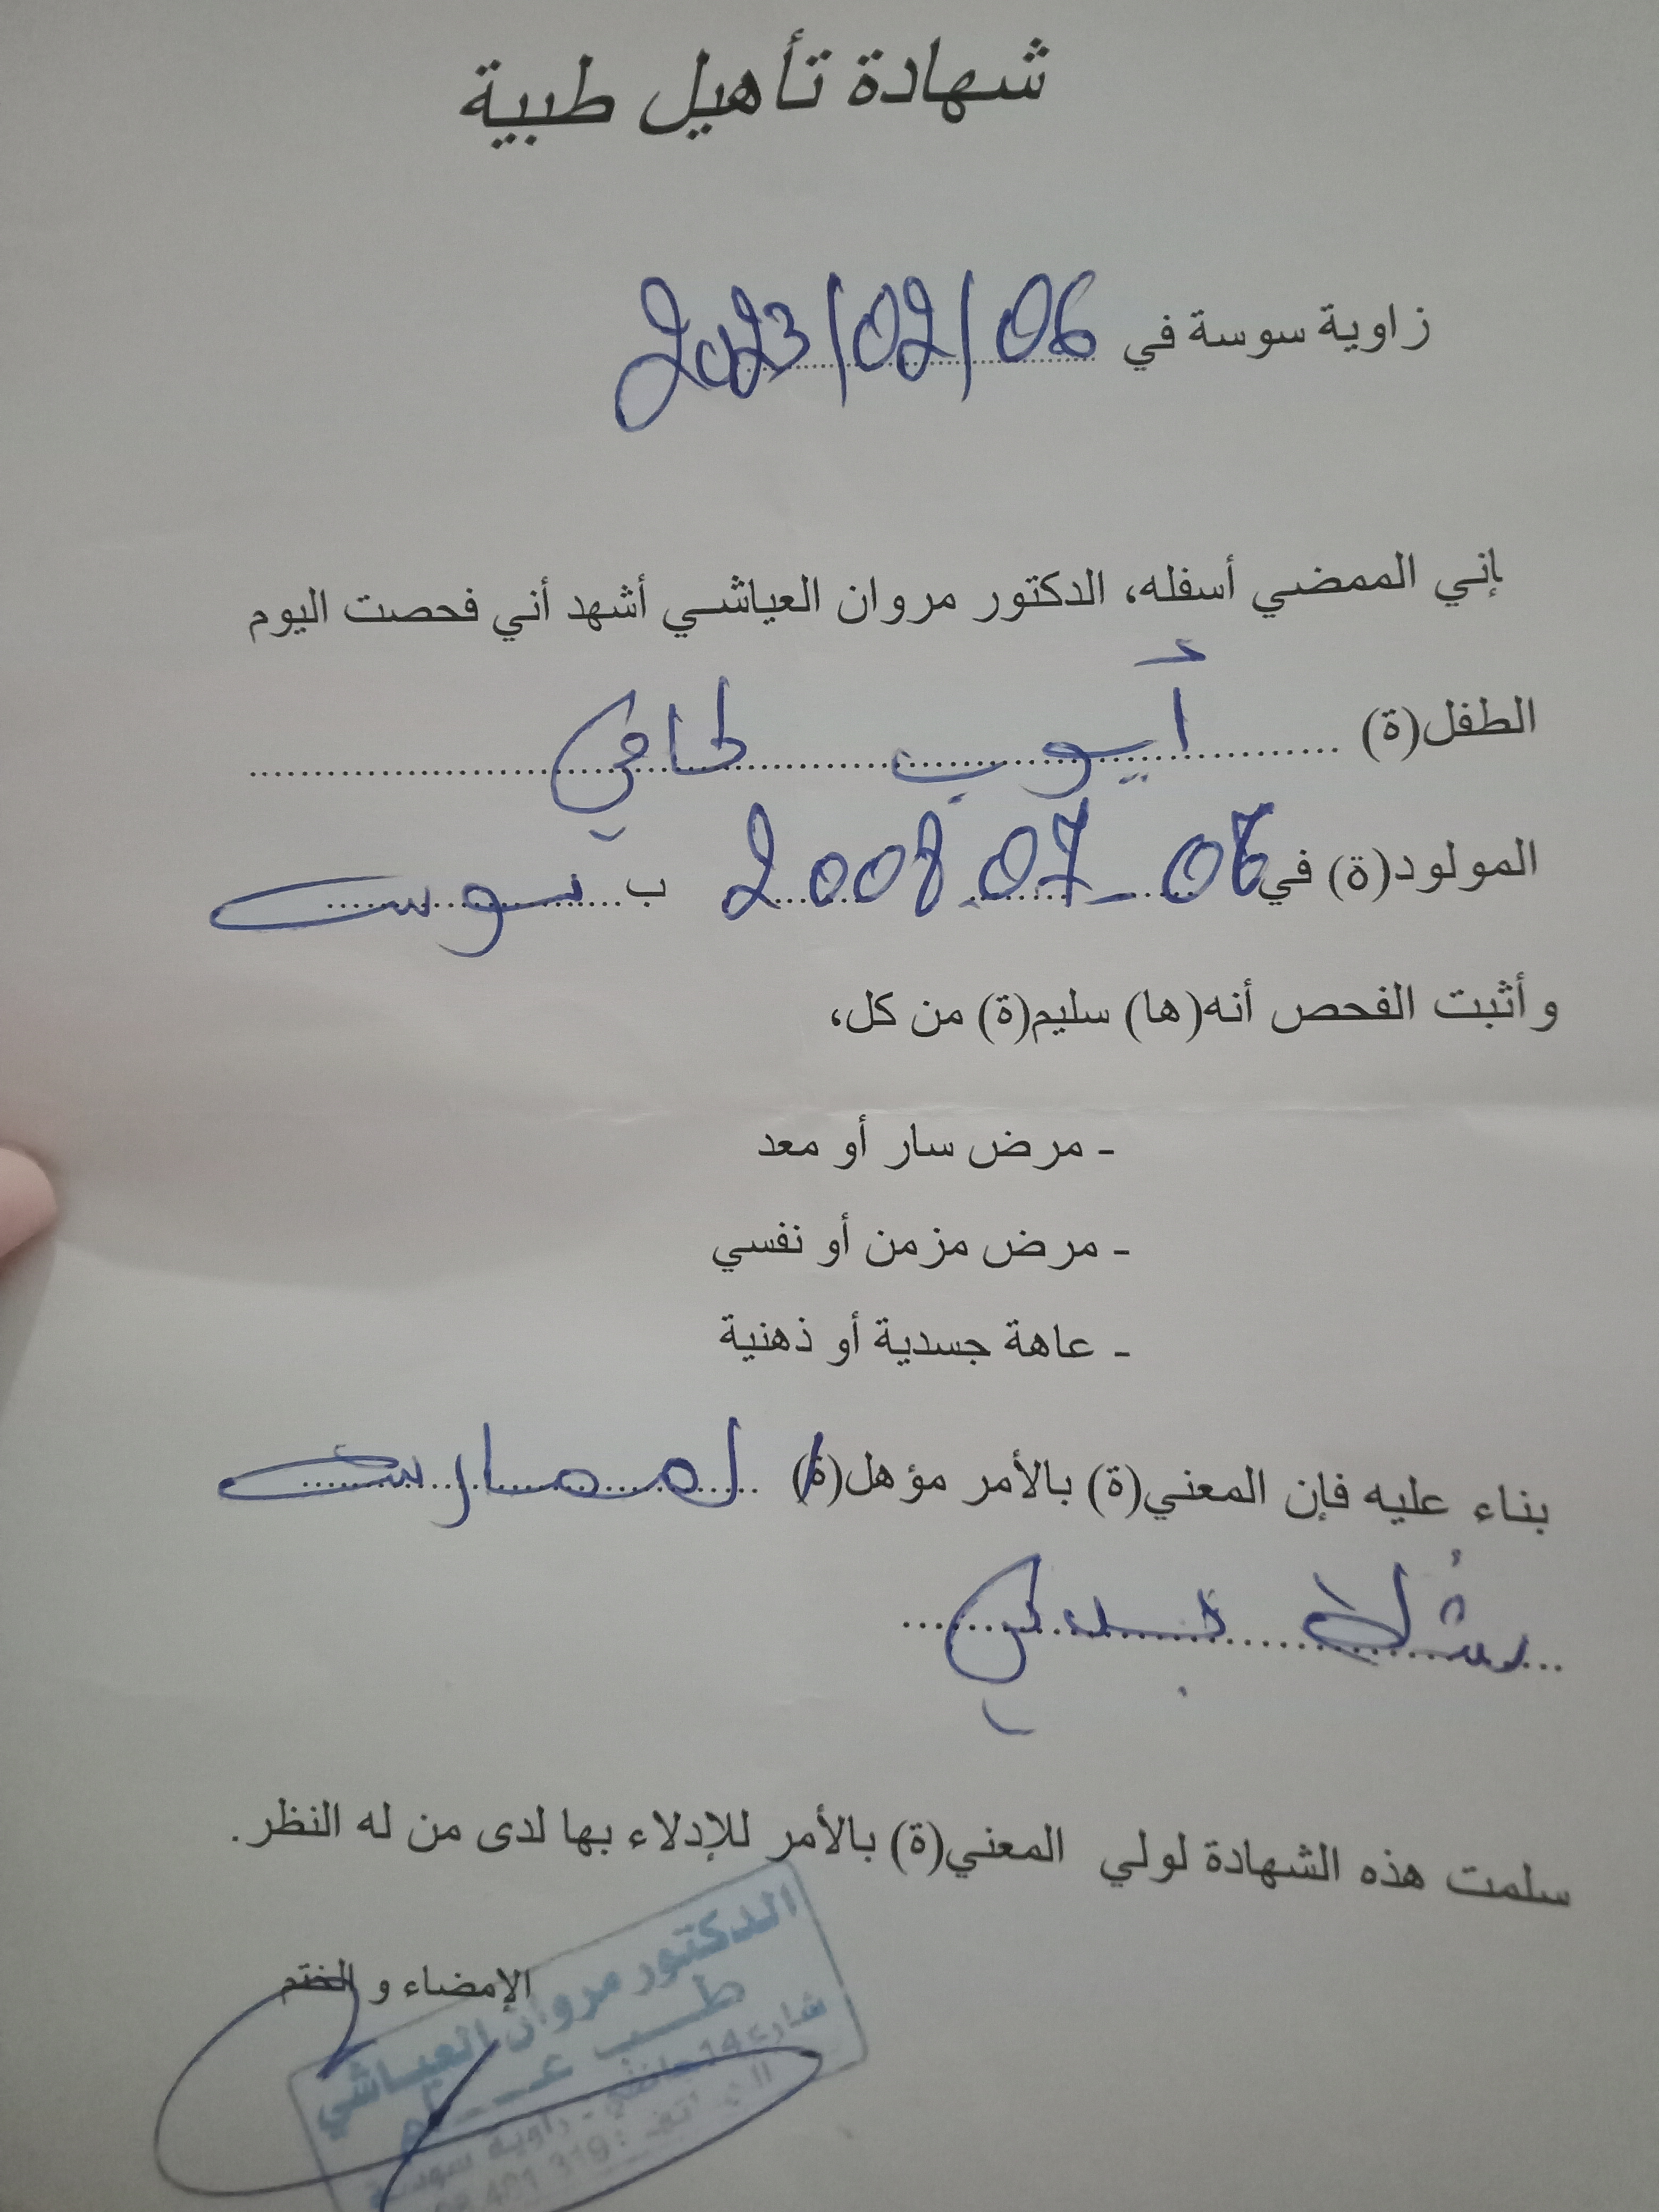 شهادة تأهيل طبية
زاوية سوسة في 2023/02/06
إني الممضي أسفله، الدكتور مروان العياشي أشهد أني فحصت اليوم
الطفل(ة) أيوب
المولود(ة) في 2008.07_06 ب سوسة
و أثبت الفحص أنه(ها) سليم(ة) من كل،
- مرض سار أو معد
- مرض مزمن أو نفسي
- عاهة جسدية أو ذهنية
بناء عليه فإن المعني(ة) بالأمر مؤهل(ة) لممارسة
سلمت هذه الشهادة لولي المعني(ة) بالأمر للإدلاء بها لدى من له النظر.
الإمضاء و الختم
الدكتور مروان العياشي
طب عام
شارع 14 جانفي - زاوية سوسة